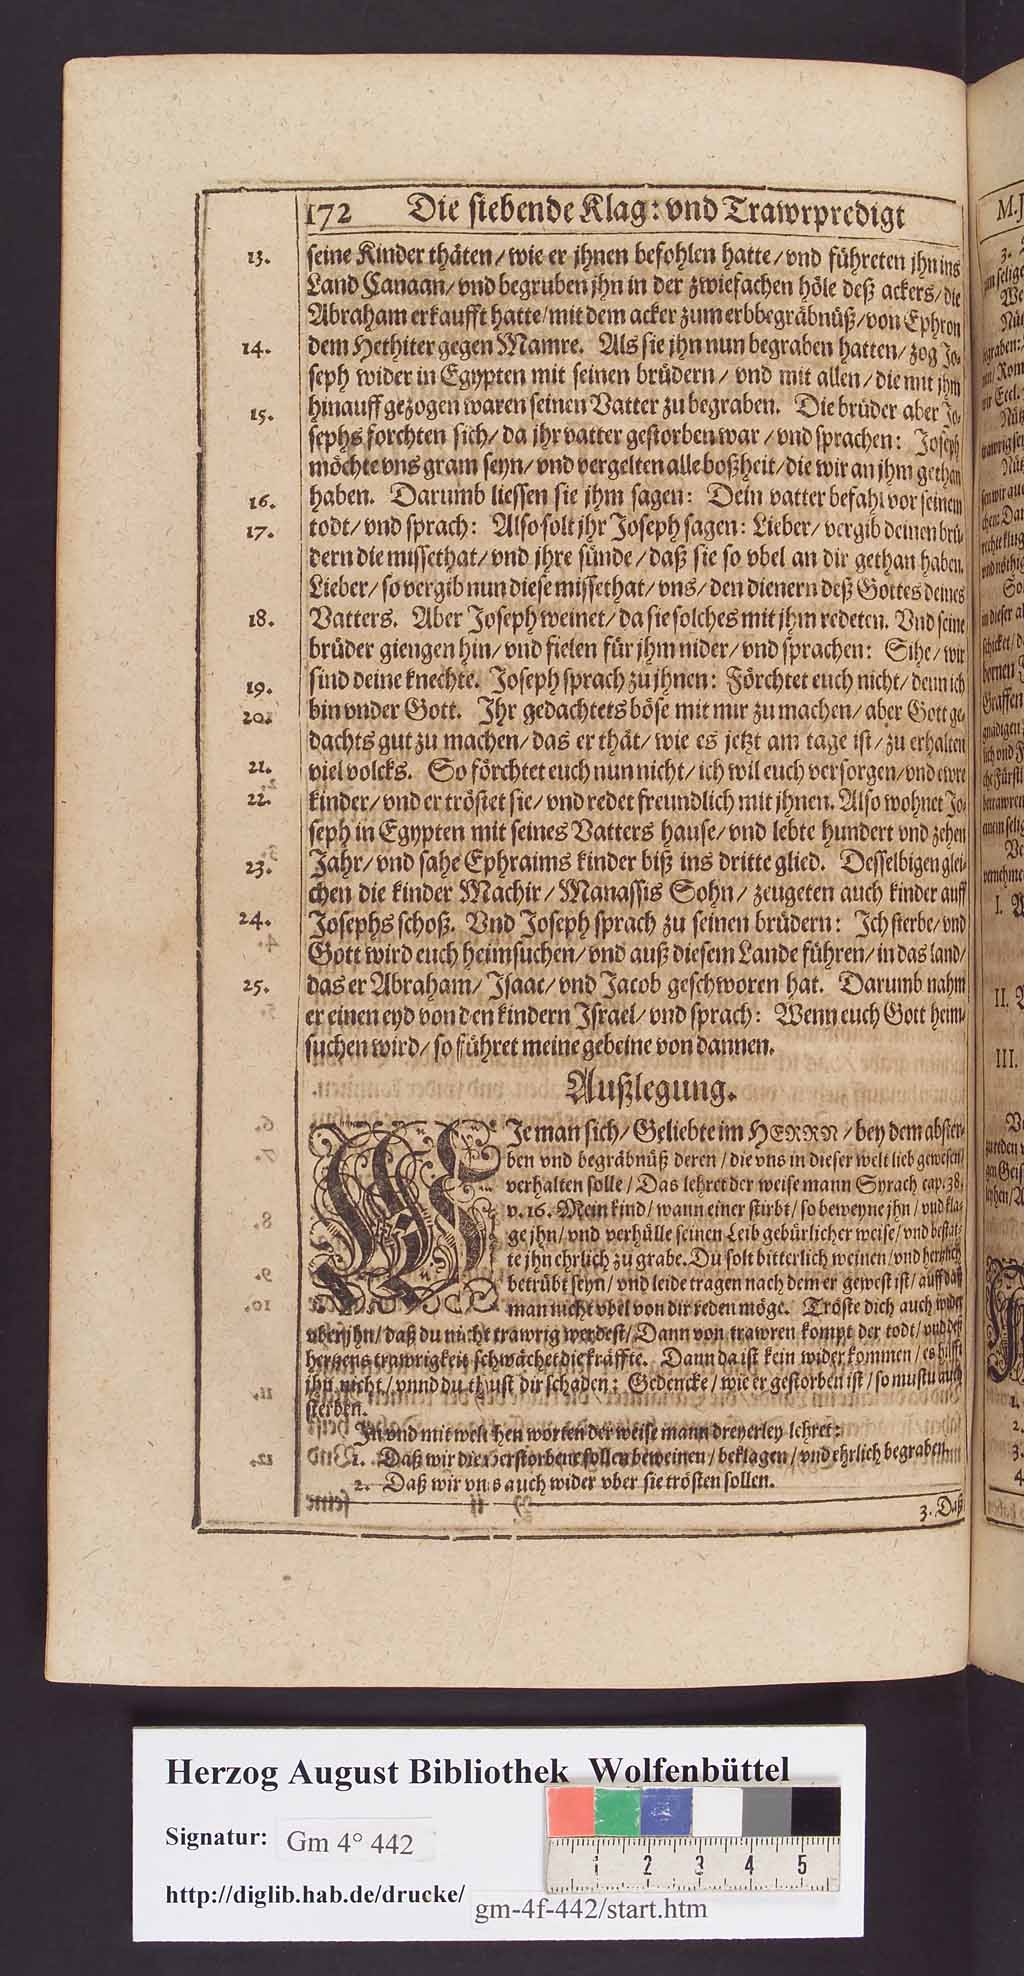 172 Die siebende Klag: vnd Trawrpredigt
13. seine Kinder thäten/ wie er jhnen befohlen hatte/ vnd führeten jhn ins
Land Canaan/ vnd begruben jhn in der zwiefachen höle deß ackers/ die
Abraham erkaufft hatte/ mit dem acker zum erbbegräbnüß/ von Ephron
14. dem Hethiter gegen Mamre. Als sie jhn nun begraben hatten/ zog Jo-
seph wider in Egypten mit seinen brüdern/ vnd mit allen/ die mit jhm
15. hinauff gezogen waren seinen Vatter zu begraben. Die brüder aber Jo-
sephs forchten sich/ da jhr vatter gestorben war/ vnd sprachen: Joseph
möchte vns gram seyn/ vnd vergelten alle boßheit/ die wir an jhm gethan
16. haben. Darumb liessen sie jhm sagen: Dein vatter befahl vor seinem
17. todt/ vnd sprach: Also solt jhr Joseph sagen: Lieber/ vergib deinen brü-
dern die missethat/ vnd jhre sünde/ daß sie so vbel an dir gethan haben.
Lieber/ so vergib nun diese missethat/ vns/ den dienern deß Gottes deines
18. Vatters. Aber Joseph weinet/ da sie solches mit jhm redeten. Vnd seine
brüder giengen hin/ vnd fielen für jhm nider/ vnd sprachen: Sihe/ wir
19. sind deine knechte. Joseph sprach zu jhnen: Förchtet euch nicht/ denn ich
20. bin vnder Gott. Jhr gedachtets böse mit mir zu machen/ aber Gott ge-
dachts gut zu machen/ das er thät/ wie es jetzt am tage ist/ zu erhalten
21. viel volcks. So förchtet euch nun nicht/ ich wil euch versorgen/ vnd ewre
22. kinder/ vnd er tröstet sie/ vnd redet freundlich mit jhnen. Also wohnet Jo-
seph in Egypten mit seines Vatters hause/ vnd lebte hundert vnd zehen
23. Jahr/ vnd sahe Ephraims kinder biß ins dritte glied. Desselbigen glei-
chen die kinder Machir/ Manassis Sohn/ zeugeten auch kinder auff
24. Josephs schoß. Vnd Joseph sprach zu seinen brüdern: Ich sterbe/ vnd
Gott wird euch heimsuchen/ vnd auß diesem Lande führen/ in das land/
25. das er Abraham/ Isaac/ vnd Jacob geschworen hat. Darumb nahm
er einen eyd von den kindern Israel/ vnd sprach: Wenn euch Gott heim-
suchen wird/ so führet meine gebeine von dannen.
Außlegung.
WJe man sich/ Geliebte im HERRN/ bey dem abster-
ben vnd begräbnüß deren/ die vns in dieser welt lieb gewesen/
verhalten solle/ Das lehret der weise mann Syrach cap. 38.
v. 16. Mein kind/ wann einer stirbt/ so beweyne jhn/ vnd kla-
ge jhn/ vnd verhülle seinen Leib gebürlicher weise/ vnd bestat-
te jhn ehrlich zu grabe. Du solt bitterlich weinen/ vnd hertzlich
betrübt seyn/ vnd leide tragen nach dem er gewest ist/ auff daß
man nicht vbel von dir reden möge. Tröste dich auch wider
vber jhn/ daß du nicht trawrig werdest/ Dann von trawren kompt der todt/ vnd deß
hertzens trawrigkeit schwächet die kräffte. Dann da ist kein wider kommen/ es hilfft
jhn nicht/ vnnd du thust dir schaden: Gedencke/ wie er gestorben ist/ so mustu auch
sterben.
In vnd mit welchen worten der weise mann dreyerley lehret:
1. Daß wir die verstorbene sollen beweinen/ beklagen/ vnd ehrlich begraben.
2. Daß wir vns auch wider vber sie trösten sollen.
3. Daß
Herzog August Bibliothek Wolfenbüttel
Signatur: Gm 4° 442
http://diglib.hab.de/drucke/ gm-4f-442/start.htm
1 2 3 4 5